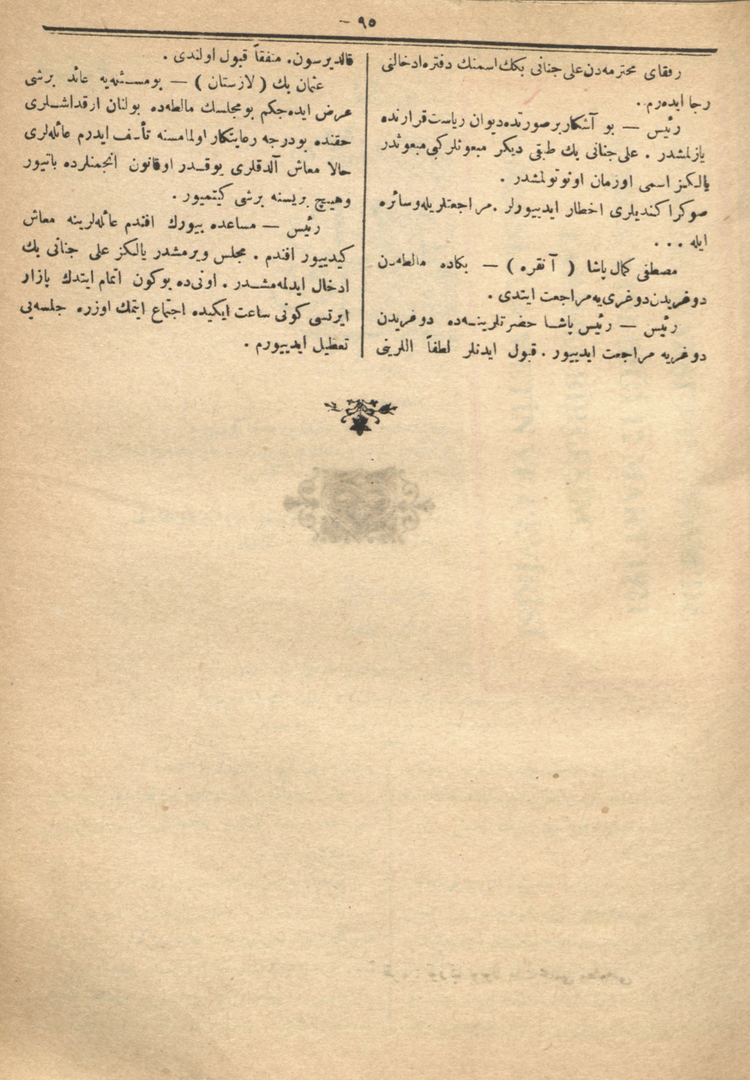 — ٩٥ —
رفقای محترمه‌دن علی جنانی بكك اسمنك دفتره ادخالنی
رجا ایده‌رم.
رئیس — بو آشكار بر صورتده دیوان ریاست قرارنده
یازلمشدر . علی جنانی بك طبقی دیگر مبعوثلر كبی مبعوثدر
یالكز اسمی اوزمان اونوتولمشدر .
صوكرا كندیلری اخطار ایدییورلر . مراجعتلریله و سائره
ایله ...
مصطفی كمال پاشا ( آنقره ) — بكاده مالطه‌دن
دوغریدن دوغری‌یه مراجعت ایتدی .
رئیس — رئیس پاشا حضرتلرینه‌ده دوغریدن
دوغریه مراجعت ایدییور . قبول ایدنلر لطفاً اللرینی
قالدیرسون. متفقاً قبول اولندی .
عثمان بك ( لازستان ) — بومسئله‌یه عائد برشی
عرض ایده‌جكم بومجلسك مالطه‌ده بولنان ارقداشلری
حقنده بودرجه رعایتكار اولمامسنه تأسف ایدرم عائله‌لری
حالا معاش آلدقلری یوقدر اوقانون انجمنلرده باتیور
وهیچ بریسنه برشی كیتمیور .
رئیس — مساعده بیورك افندم عائله‌لرینه معاش
كیدییور افندم . مجلس ویرمشدر یالكز علی جنانی بك
ادخال ایدلمه‌مشدر . اونی‌ده بوكون اتمام ایتدك بازار
ایرتسی كونی ساعت ایكیده اجتماع ایتمك اوزره جلسه‌یی
تعطیل ایدییورم .